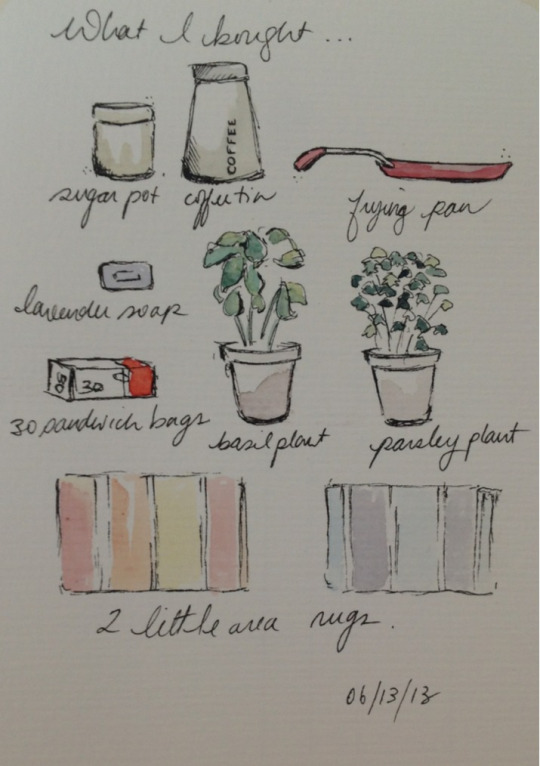 What I bought ...
COFFEE
sugar pot coffee tin frying pan
lavender soap
30 30
30 sandwich bags
basil plant parsley plant
2 little area rugs.
06/13/13